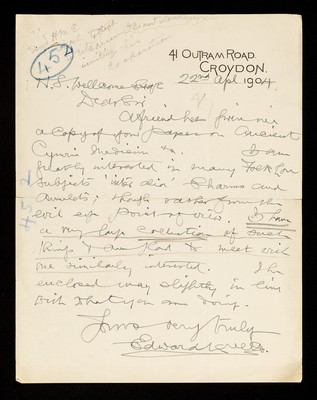 452
41 OUTRAM ROAD.
CROYDON.
22nd Apl 1904
H. S. Wellcome Esqre
Dear Sir
A friend has given me
a Copy of your paper on Ancient
Cymric Medicine &c. I am
greatly interested in many Folk Lore
Subjects inter alia Charms and
Amulets; though rather from the
evil eye point of view. I have
a very large Collection of such
things & am glad to meet with
one similarly interested. The
enclosed may slightly in line
with what you are doing.
452
Yours very truly
Edward Lovett